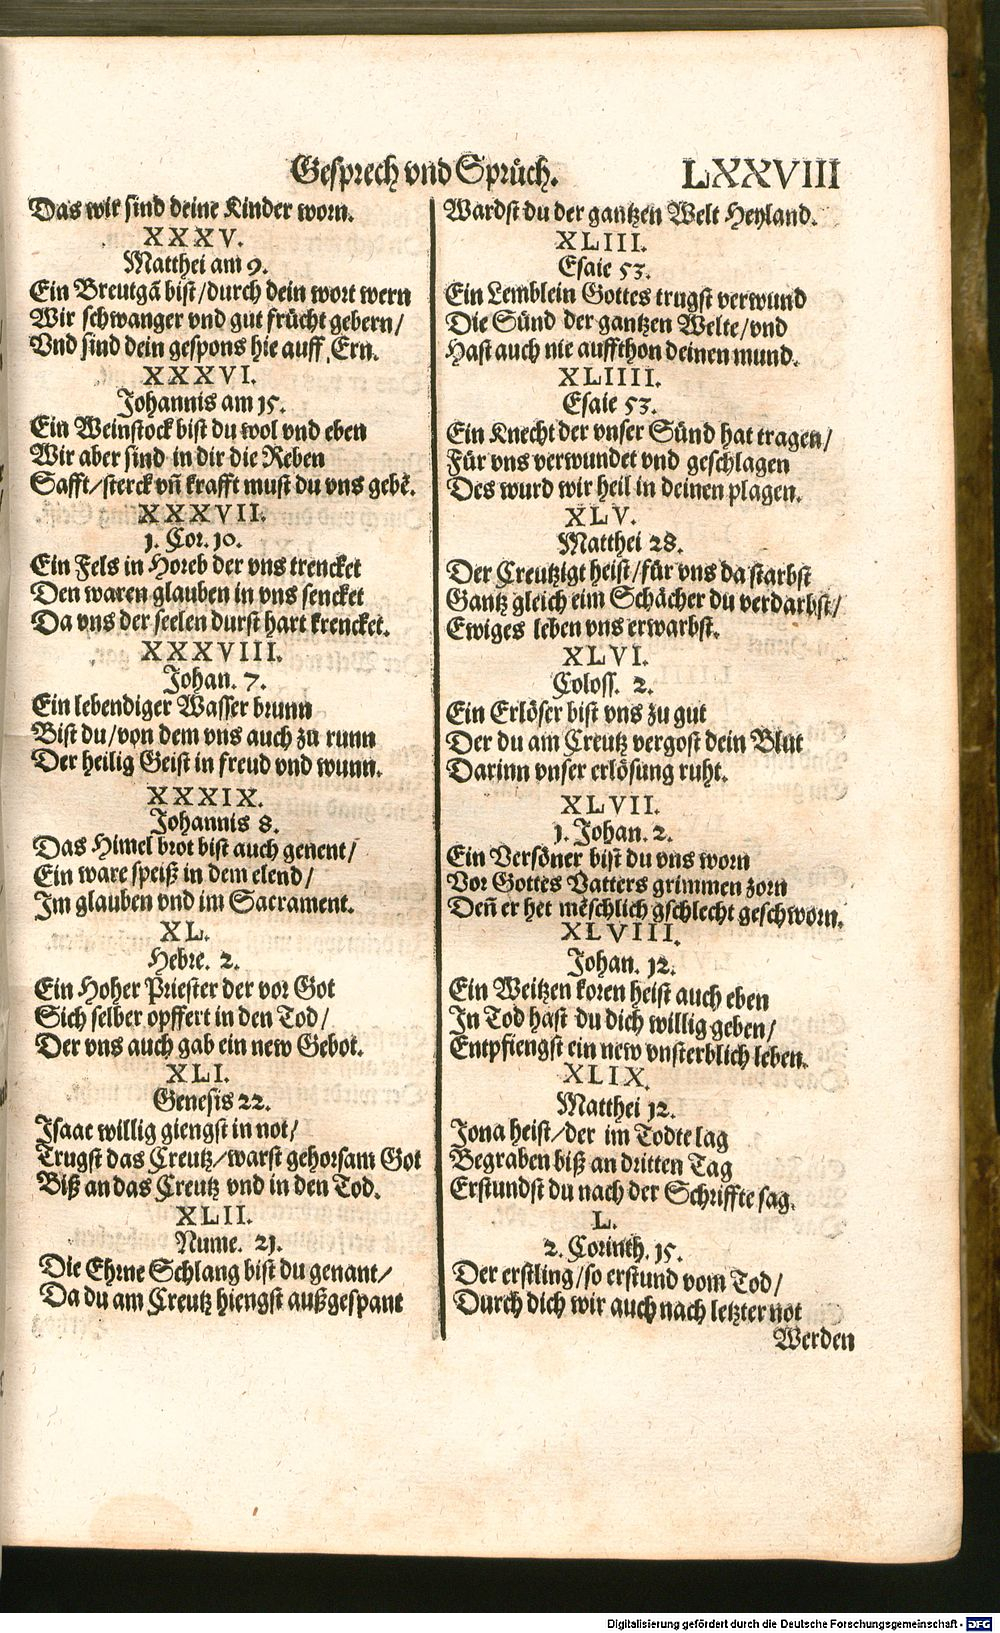 Gesprech vnd Sprüch. LXXVIII
Das wir sind deine Kinder worn.
XXXV.
Matthei am 9.
Ein Breutgã bist/durch dein wort wern
Wir schwanger vnd gut frücht gebern/
Vnd sind dein gespons hie auff Ern.
XXXVI.
Johannis am 15.
Ein Weinstock bist du wol vnd eben
Wir aber sind in dir die Reben
Safft/sterck vñ krafft must du vns gebẽ.
XXXVII.
1. Cor. 10.
Ein Fels in Horeb der vns trencket
Den waren glauben in vns sencket
Da vns der seelen durst hart krencket.
XXXVIII.
Johan. 7.
Ein lebendiger Wasser brunn
Bist du/von dem vns auch zu runn
Der heilig Geist in freud vnd wunn.
XXXIX.
Johannis 8.
Das Himel brot bist auch genent/
Ein ware speiß in dem elend/
Im glauben vnd im Sacrament.
XL.
Hebre. 2.
Ein Hoher Priester der vor Got
Sich selber opffert in den Tod/
Der vns auch gab ein new Gebot.
XLI.
Genesis 22.
Isaac willig giengst in not/
Trugst das Creutz/warst gehorsam Got
Biß an das Creutz vnd in den Tod.
XLII.
Nume. 21.
Die Ehrne Schlang bist du genant/
Da du am Creutz hiengst außgespant
Wardst du der gantzen Welt Heyland.
XLIII.
Esaie 53.
Ein Lemblein Gottes trugst verwund
Die Sünd der gantzen Welte/vnd
Hast auch nie auffthon deinen mund.
XLIIII.
Esaie 53.
Ein Knecht der vnser Sünd hat tragen/
Für vns verwundet vnd geschlagen
Des wurd wir heil in deinen plagen.
XLV.
Matthei 28.
Der Creutzigt heist/für vns da starbst
Gantz gleich eim Schächer du verdarbst/
Ewiges leben vns erwarbst.
XLVI.
Coloss. 2.
Ein Erlöser bist vns zu gut
Der du am Creutz vergost dein Blut
Darinn vnser erlösung ruht.
XLVII.
1. Johan. 2.
Ein Versöner bist du vns worn
Vor Gottes Vatters grimmen zorn
Deñ er het mẽschlich gschlecht geschworn.
XLVIII.
Johan. 12.
Ein Weitzen koren heist auch eben
In Tod hast du dich willig geben/
Entpfiengst ein new vnsterblich leben.
XLIX.
Matthei 12.
Jona heist/der im Todte lag
Begraben biß an dritten Tag
Erstundst du nach der Schriffte sag.
L.
2. Corinth. 15.
Der erstling/so erstund vom Tod/
Durch dich wir auch nach letzter not
Werden
Digitalisierung gefördert durch die Deutsche Forschungsgemeinschaft - DFG